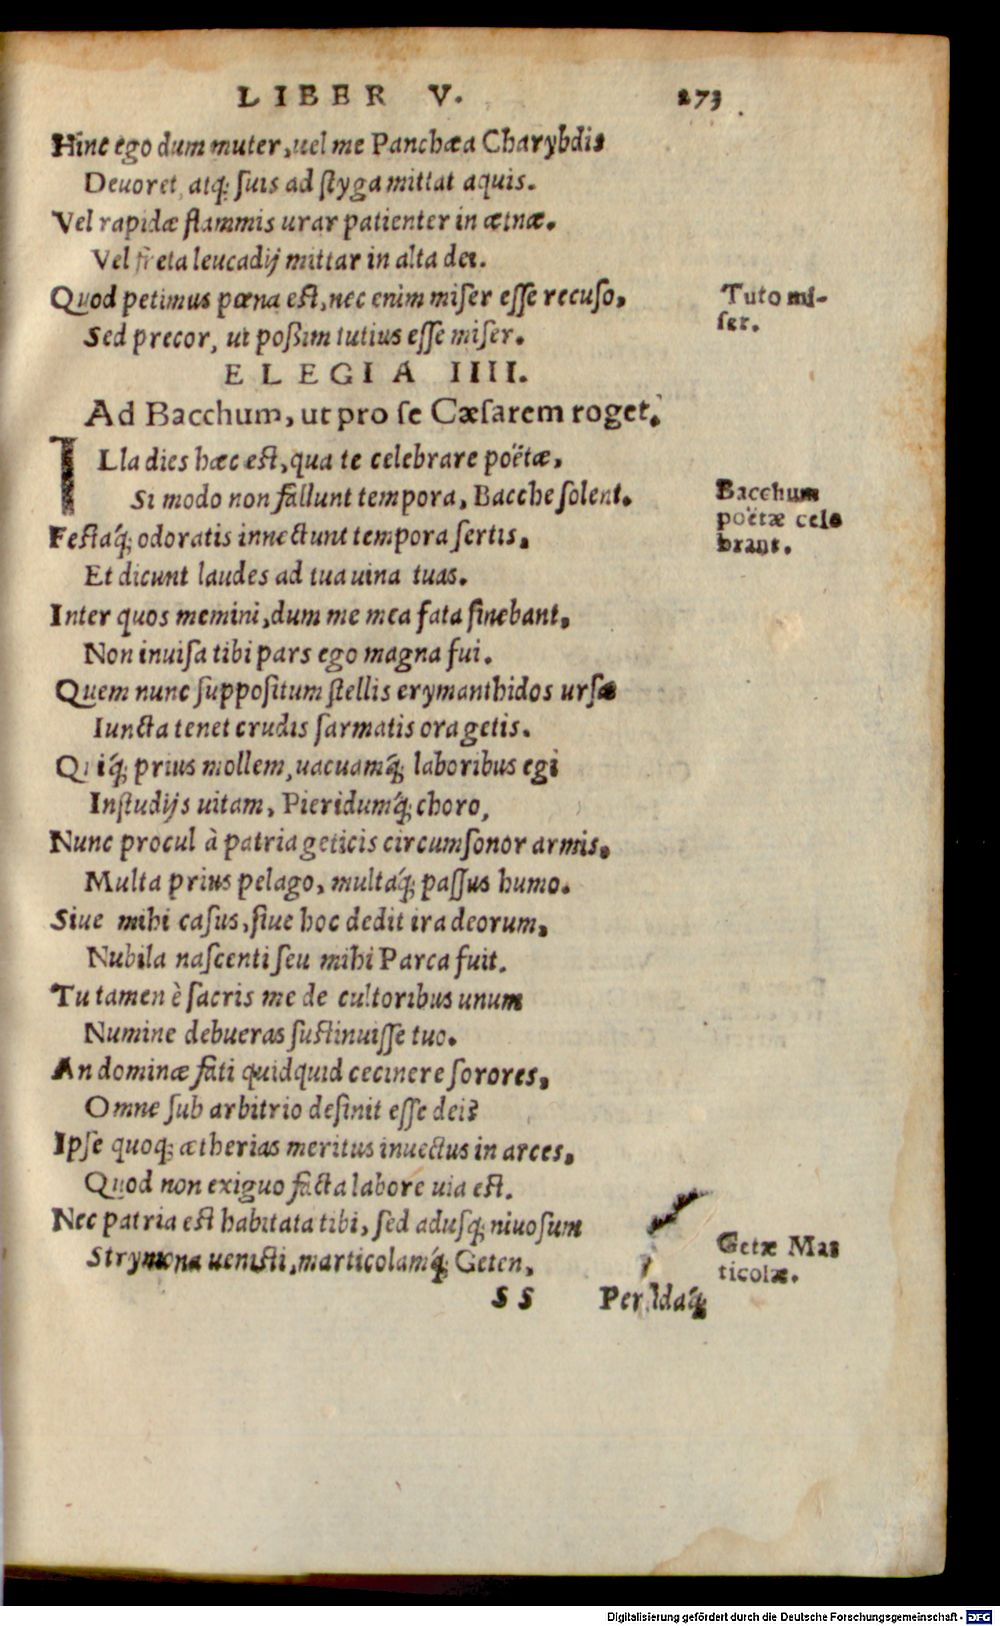 LIBER V. 273
Hinc ego dum muter, uel me Panchæa Charybdis
Deuoret, atq; suis ad styga mittat aquis.
Vel rapidæ flammis urar patienter in ætnæ.
Vel freta leucadij mittar in alta dei.
Quod petimus pœna est, nec enim miser esse recuso,
Sed precor, ut poßim tutius esse miser.
Tuto mi-
ser.
ELEGIA IIII.
Ad Bacchum, ut pro se Cæsarem roget.
ILla dies hæc est, qua te celebrare poëtæ,
Si modo non fallunt tempora, Bacche solent.
Festaq́; odoratis innectunt tempora sertis,
Et dicunt laudes ad tua uina tuas.
Bacchum
poëtæ cele
brant.
Inter quos memini, dum me mea fata sinebant,
Non inuisa tibi pars ego magna fui.
Quem nunc suppositum stellis erymanthidos ursæ
Iuncta tenet crudis sarmatis ora getis.
Quiq́; prius mollem, uacuamq́; laboribus egi
In studijs uitam, Pieridumq́; choro,
Nunc procul à patria geticis circumsonor armis,
Multa prius pelago, multaq́; passus humo.
Siue mihi casus, siue hoc dedit ira deorum,
Nubila nascenti seu mihi Parca fuit.
Tu tamen è sacris me de cultoribus unum
Numine debueras sustinuisse tuo.
An dominæ fati quidquid cecinere sorores,
Omne sub arbitrio desinit esse dei?
Ipse quoq; ætherias meritus inuectus in arces,
Quod non exiguo facta labore uia est.
Nec patria est habitata tibi, sed adusq; niuosum
Strymona uenisti, marticolamq́; Geten,
Getæ Mar
ticolæ.
SS Persidaq́;
Digitalisierung gefördert durch die Deutsche Forschungsgemeinschaft - DFG